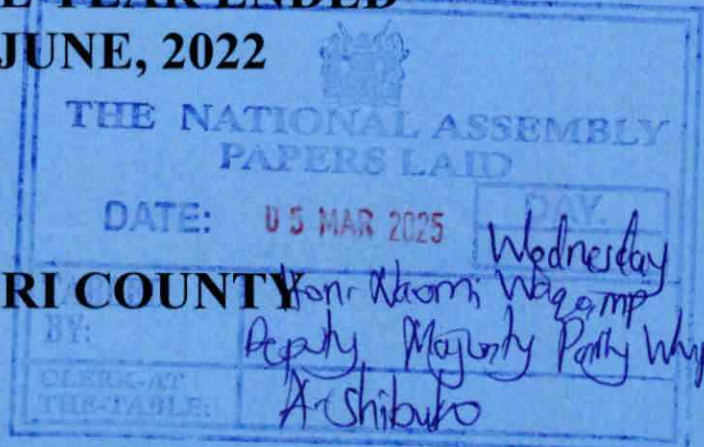 E YEAR ENDED
JUNE, 2022
THE NATIONAL ASSEMBLY
PAPERS LAID
DATE: 05 MAR 2025 DAY.
Wednesday
RI COUNTY Hon. Naomi Waqo, mp
BY: Deputy Majority Party Whip
CLERK-AT
THE-TABLE: A. Shibuko